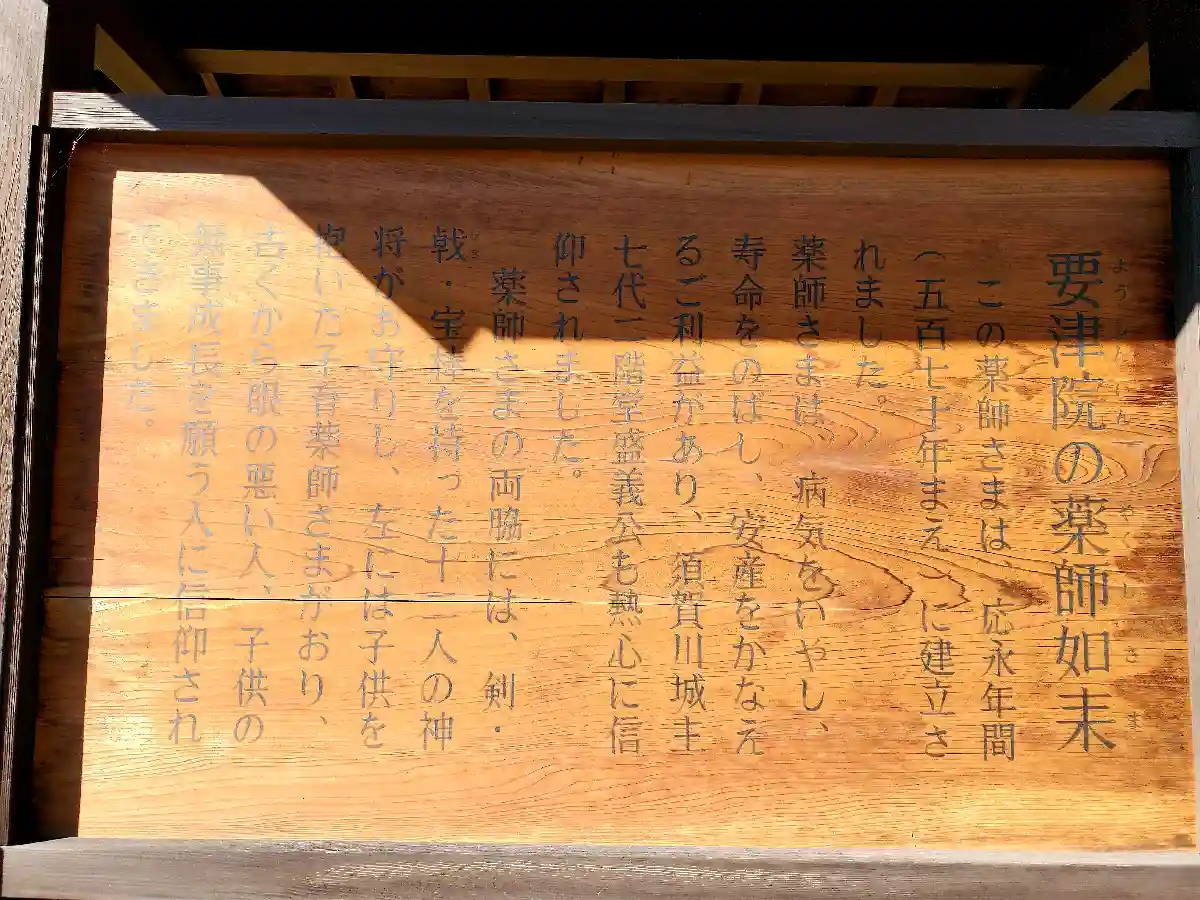 要津院の薬師如来
ようしんいん
やくしさま
この薬師さまは、応永年間
（五百七十年まえ）に建立さ
れました。
薬師さまは、病気をいやし、
寿命をのばし、安産をかなえ
るご利益があり、須賀川城主
七代二階堂盛義公も熱心に信
仰されました。
薬師さまの両脇には、剣・
戟・宝棒を持った十二人の神
げき
将がお守りし、左には子供を
抱いた子育薬師さまがおり、
古くから眼の悪い人、子供の
無事成長を願う人に信仰され
てきました。